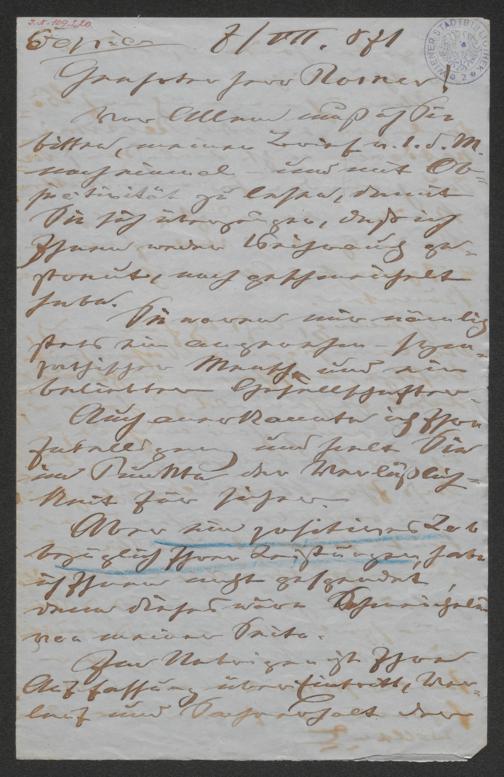 I.N. 109.220
Copie 8/VII. 871
Geehrter Herr Rosner!
Vor Allem muß ich Sie
bitten, meinen Brief v. 1. d. M.
noch einmal – und mit Ob-
jektivität zu lesen, damit
Sie sich überzeugen, daß ich
Ihnen weder Weihrauch ge-
streut, noch geschmeichelt
habe.
Sie waren mir nämlich
stets ein angenehm – sym-
pathischer Mensch und ein
beliebter Gesellschafter.
Auch anerkannte ich Ihre
Intelligenz und hielt Sie
im Punkte der Verläßlich-
keit für sicher.
Aber ein positives Lob
bezüglich Ihrer Leistungen, habe
ich Ihnen nicht gespendet,
denn dieses wäre Schmeichelei
von meiner Seite.
Im Uebrigen ist Ihre
Auffassung über Eintritt, Ver-
lauf und der
WIENER STADTBIBLIOTHEK